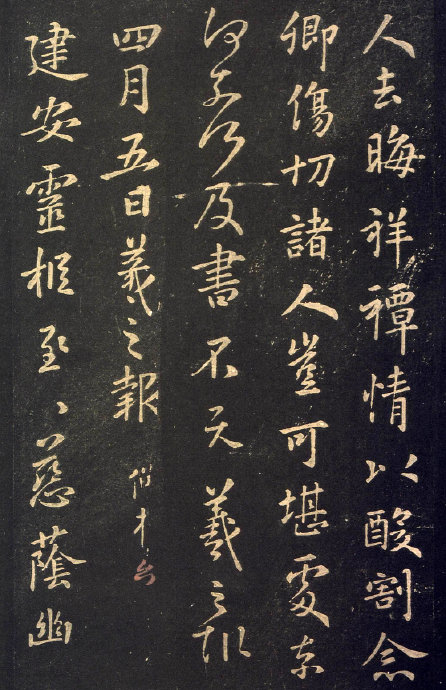 人去晦祥禫情以酸割念
卿傷切諸人豈可堪處奈
何奈何及書不次羲之報
四月五日羲之報
建安靈柩至〻慈蔭幽